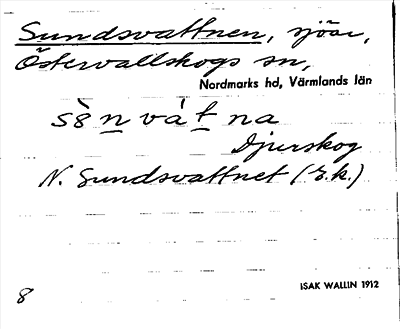 Sundsvattnen, sjöar,
Östervallskogs sn,
Nordmarks hd, Värmlands län
sènvátna
Djurskog
N. Sundsvattnet (E.k.)
8
ISAK WALLIN 1912